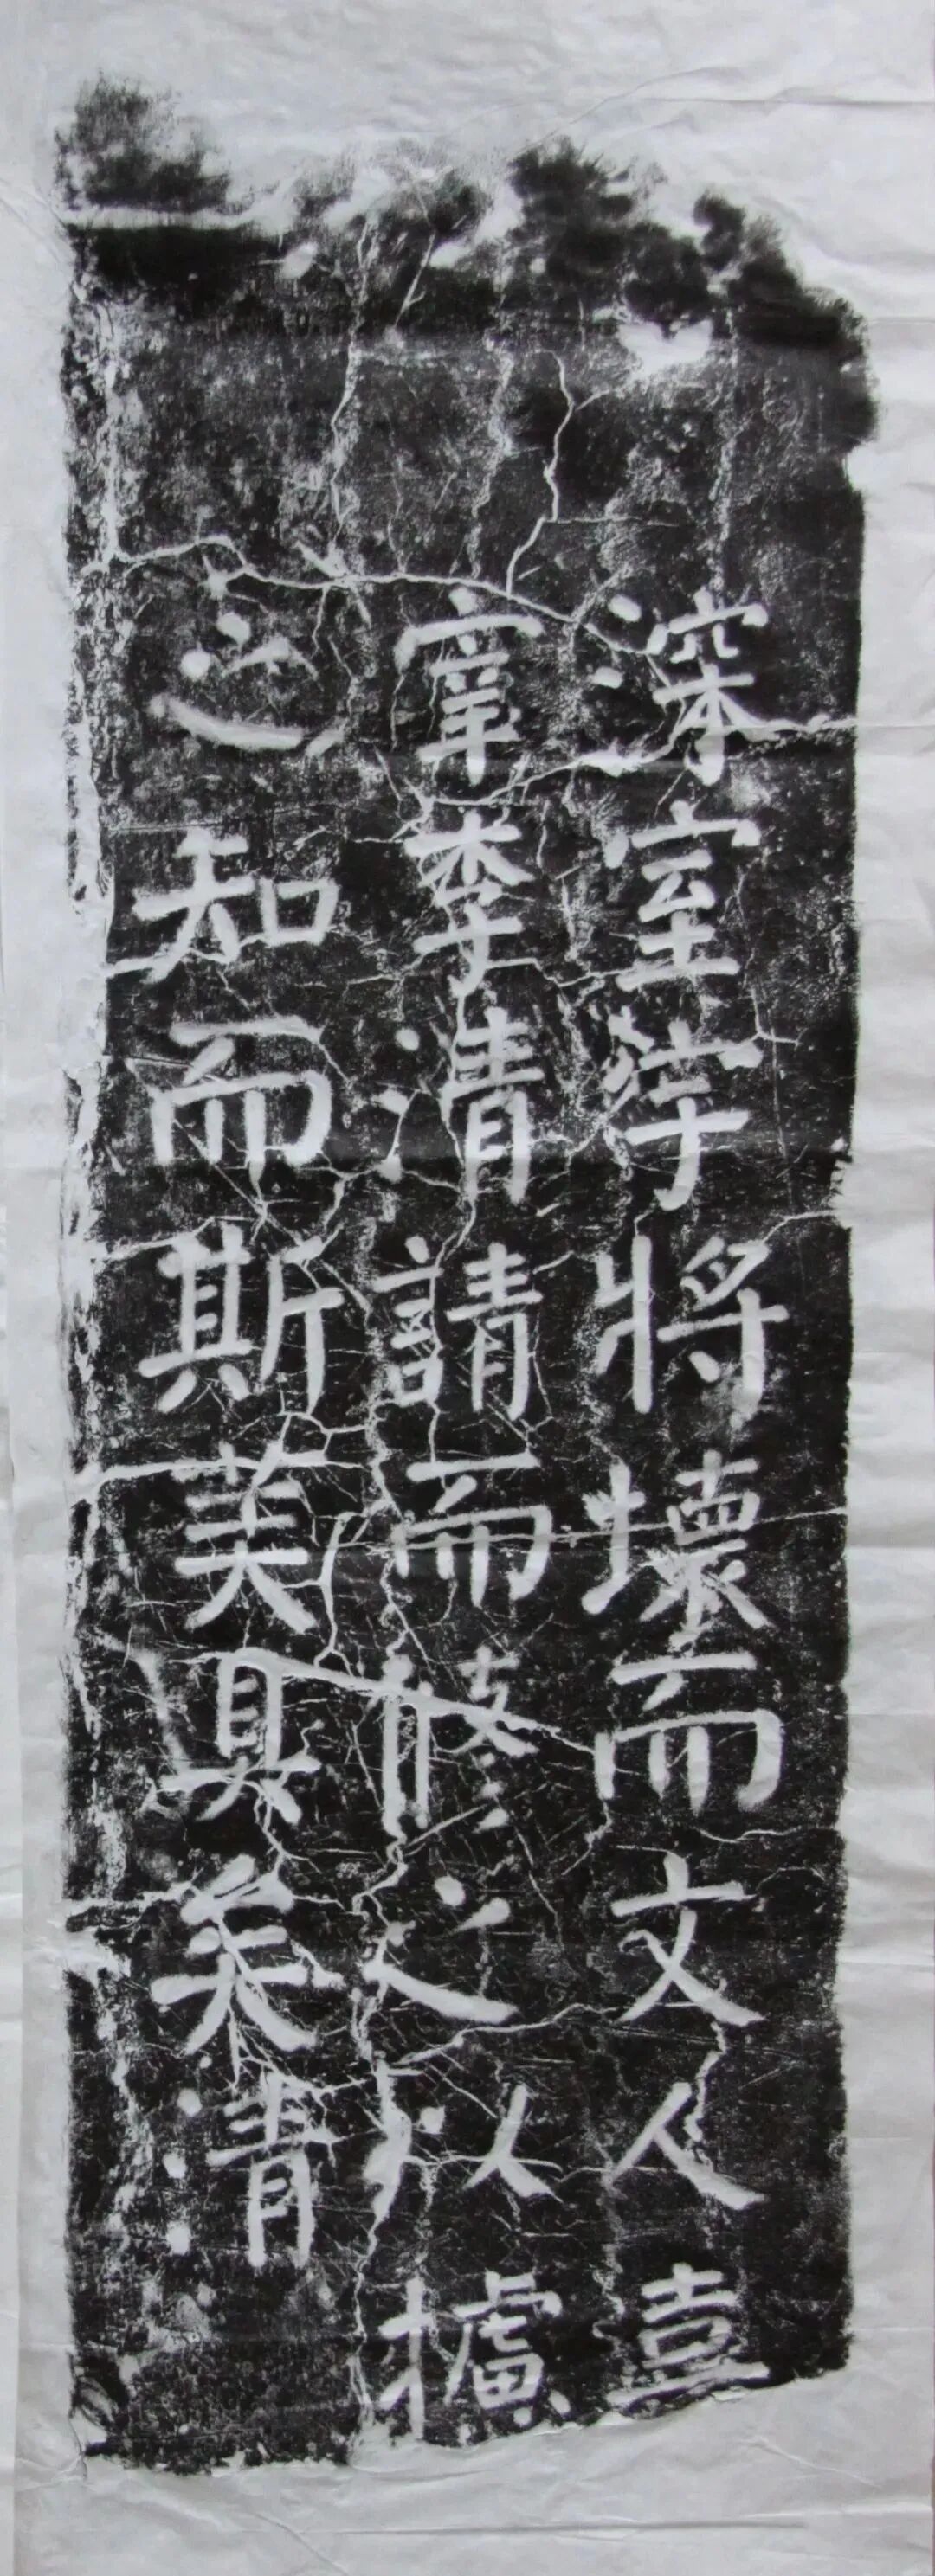 深室將壞而文人
宰李清請而修之以攄
之知而斯美具矣清